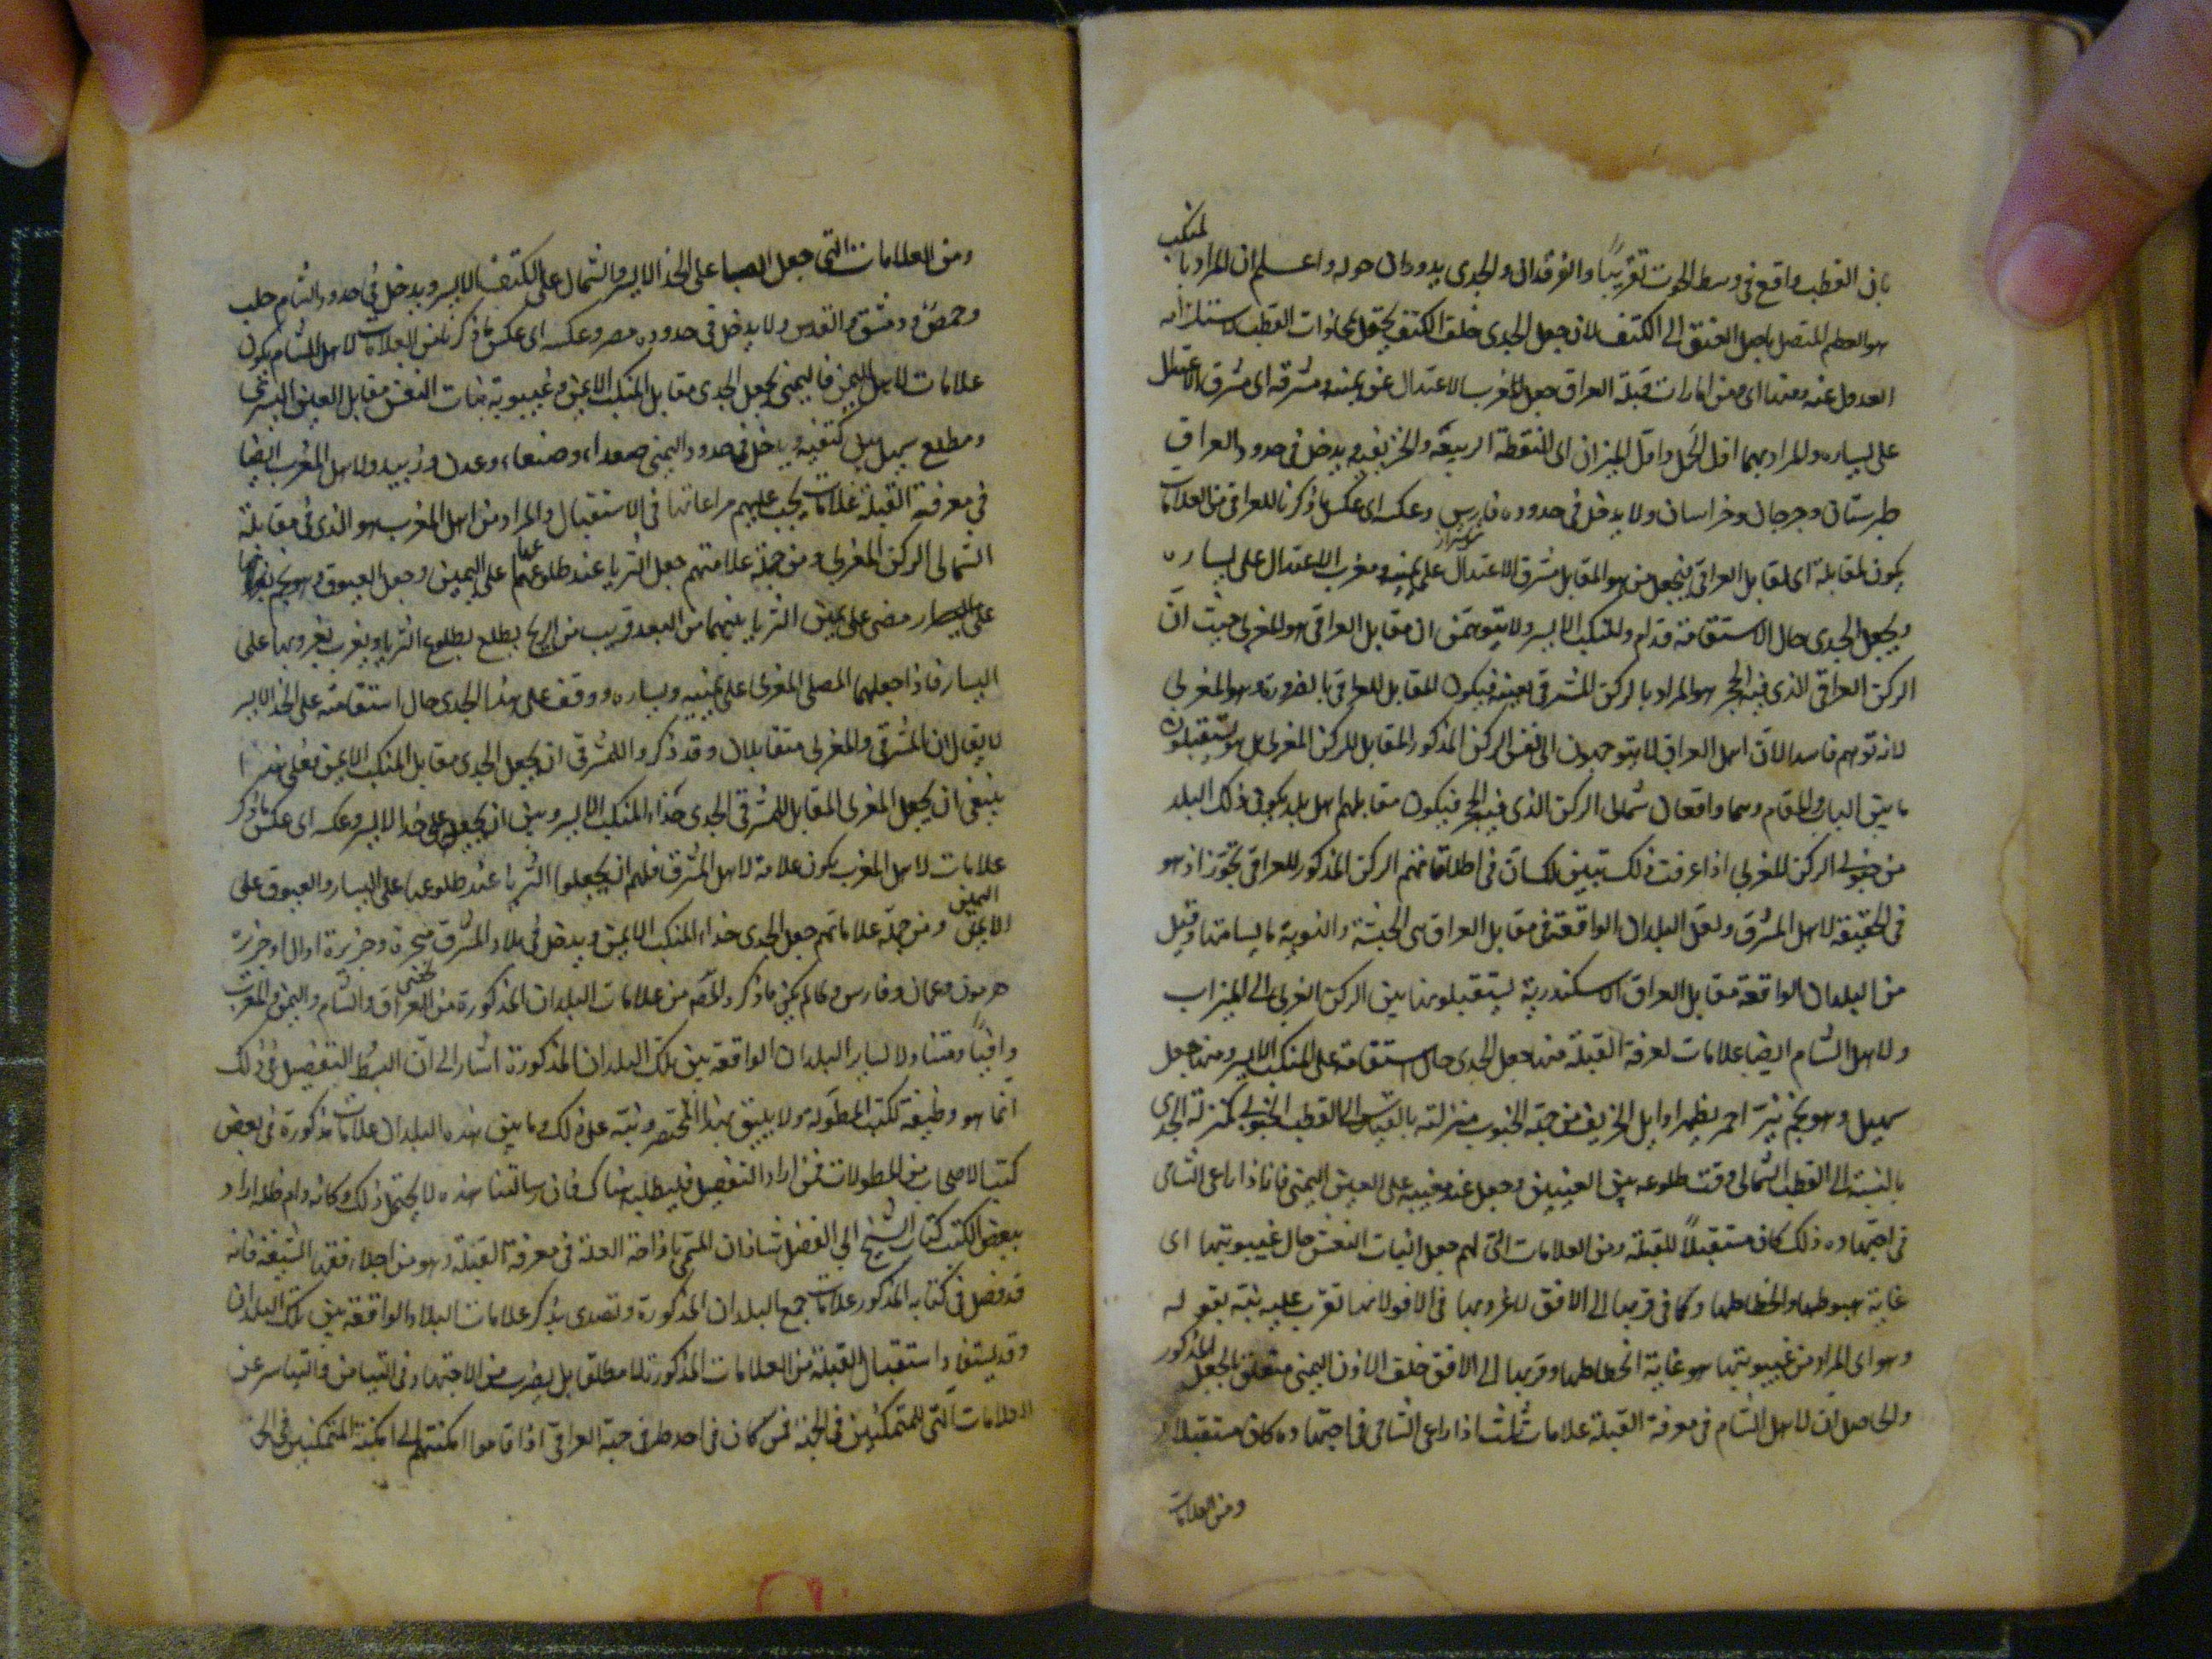 بان القطب واقع في وسط الحوت تقريبًا والفرقدان والجدي يدوران حوله واعلم ان المراد با
لمنكب
هو العظم المتصل باصل العنق الى الكتف لان جعل الجدي خلف الكتف
العدول عنه ومنها اي ومن امارات قبلة العراق جعل المغرب الاعتدال عن يمينه ومشرقه اي مشرق الاعتدال
على يساره والمراد بهما اول الحمل واول الميزان اي النقطة الربيعية والخريفية ويدخل في حدود العراق
طبرستان وجرجان وخراسان ولا يدخل في حدوده فارس وعكسه اي عكس ما ذكرنا للعراقي من العلامات
يكون لمقابلة اي لمقابل العراقي فيجعل من هو المقابل مشرق الاعتدال على يمينه ومغرب الاعتدال على يساره
ويجعل الجدي حال الاستقامة قدام والمنكب الايسر ولا يتوهمن ان مقابل العراقي هو المغربي حيث ان
الركن العراقي الذي فيه الحجر هو المراد بالركن المشرقي بعينه فيكون المقابل للعراقي بالضرورة هو المغربي
لانه توهم فاسد لان اهل العراق لا يتوجهون الى نفس الركن المذكور المقابل للركن المغربي بل هو يستقبلون
ما بين الباب والمقام وهما واقعان شمالي الركن الذي فيه الحجر فيكون مقابلهم اهل بلد يكون ذلك البلد
من جنوبي الركن المغربي اذا عرفت ذلك تبين لك ان في اطلاقاتهم الركن المذكور للعراقي تجوز اذ هو
في الحقيقة لاهل المشرق ولعل البلدان الواقعة في مقابل العراق هي الحبشة والنوبة ما يسامتها وقيل
من البلدان الواقعة مقابل العراق الاسكندرية يستقبلون ما بين الركن الغربي الى الميزاب
ولاهل الشام ايضا علامات لمعرفة القبلة منها جعل الجدي حال استقامة على المنكب الايسر ومنها جعل
سهيل وهو نجم نير احمر يظهر اوايل الخريف من جهة الجنوب منزلته بالقياس الى القطب الجنوبي كمنزلة الجدي
بالنسبة الى القطب الشمالي وقت طلوعه بين العينين وجعل عند مغيبه على العين اليمنى فانه اذا راعى الشامي
في اجتهاده ذلك كان مستقبلًا للقبلة ومن العلامات التي لهم جعل بنات النعش حال غيبوبتها اي
غاية هبوطها وانحطاطها وكما في قربها الى الافق لا غروبها في الافق لانها تقرب عليه نبه بقوله
وهو اي المراد من غيبوبتها هو غاية انحطاطها وقربها الى الافق خلف الاذن اليمنى متعلق بالجعل المذكور
والحاصل ان لاهل الشام في معرفة القبلة علامات ثلث اذا راعى الشامي في اجتهاده كان مستقبلا
ومن العلامات
ومن العلامات التي جعل الصبا على الخد الايسر والشمال على الكتف الايسر ويدخل في حدود الشام حلب
وحمص ودمشق والقدس ولا يدخل في حدوده مصر وعكسه اي عكس ما ذكرنا من العلامات لاهل الشام يكون
علامات لاهل اليمن فاليمني يجعل الجدي مقابل المنكب الايمن وغيبوبة بنات النعش مقابل العين اليسرى
ومطلع سهيل بين كتفيه ويدخل في حدود اليمني صعدا وصنعاء وعدن وزبيد ولاهل المغرب ايضا
في معرفة القبلة علامات يجب عليهم مراعاتها في الاستقبال والمراد من اهل المغرب هو الذي في مقابلة
الشمالي الركن المغربي ومن جملة علامتهم جعل الثريا عند طلوعها على اليمين وجعل العيوق وهو نجم
على اليسار مضى على يمين الثريا بينهما من البعد قريب من الرمح يطلع بطلوع الثريا ويغرب بغروبها على
اليسار فاذا جعلهما المصلي المغربي على يمينه ويساره ووقف على هذا الجدي حال استقامته على الخد الايسر
لا يقال ان المشرقي والمغربي متقابلان وقد ذكروا للمشرقي ان يجعل الجدي مقابل المنكب الايمن فعلى هذا
ينبغي ان يجعل المغربي المقابل للمشرقي الجدي حذاء المنكب الايسر وبين ان يجعل على خد الايسر وعكسه اي عكس ما ذكر
علامات لاهل المغرب يكون علامة لاهل المشرق فلهم ان يجعلوا الثريا عند طلوعها على اليسار والعيوق على
اليمين
الايمن ومن جملة علاماتهم جعل الجدي حذاء المنكب الايمن ويدخل في بلاد المشرق وجزيرة اوال وجزيرة
هرموز وعمان وفارس ولما لم يكن ما ذكره المصنف من علامات البلدان المذكورة من العراق والشام واليمن والمغرب
وافيًا ومتناولا لساير البلدان الواقعة بين تلك البلدان المذكورة اشار الى ان البسط التفصيل في ذلك
انما هو وظيفة كتب المطولة ولا يليق بهذا المختصر ونبه على ذلك وما بين هذه البلدان علامات مذكورة في بعض
كتب الاصحاب من المطولات فمن اراد التفصيل فليطلبه هناك فان رسالتنا هذه لا يحتمل ذلك وكانه دام ظله اراد
ببعض الكتب كتاب الشيخ ابي الفضل شاذان المسمى بازاحة العلة في معرفة القبلة وهو من اجلاء فقهاء الشيعة فانه
قد فصل في كتابه المذكور علامات جميع البلدان المذكورة وتصدى بذكر علامات البلاد الواقعة بين تلك البلدان
وقد يستفاد استقبال القبلة من العلامات المذكورة لا مطلقا بل بضرب من الاجتهاد في التيامن والتياسر عن
العلامات التي للمتمكنين في الجهة فمن كان في احد طرفي جهة العراقي اذا قاسوا امكنتهم الى امكنة المتمكنين في